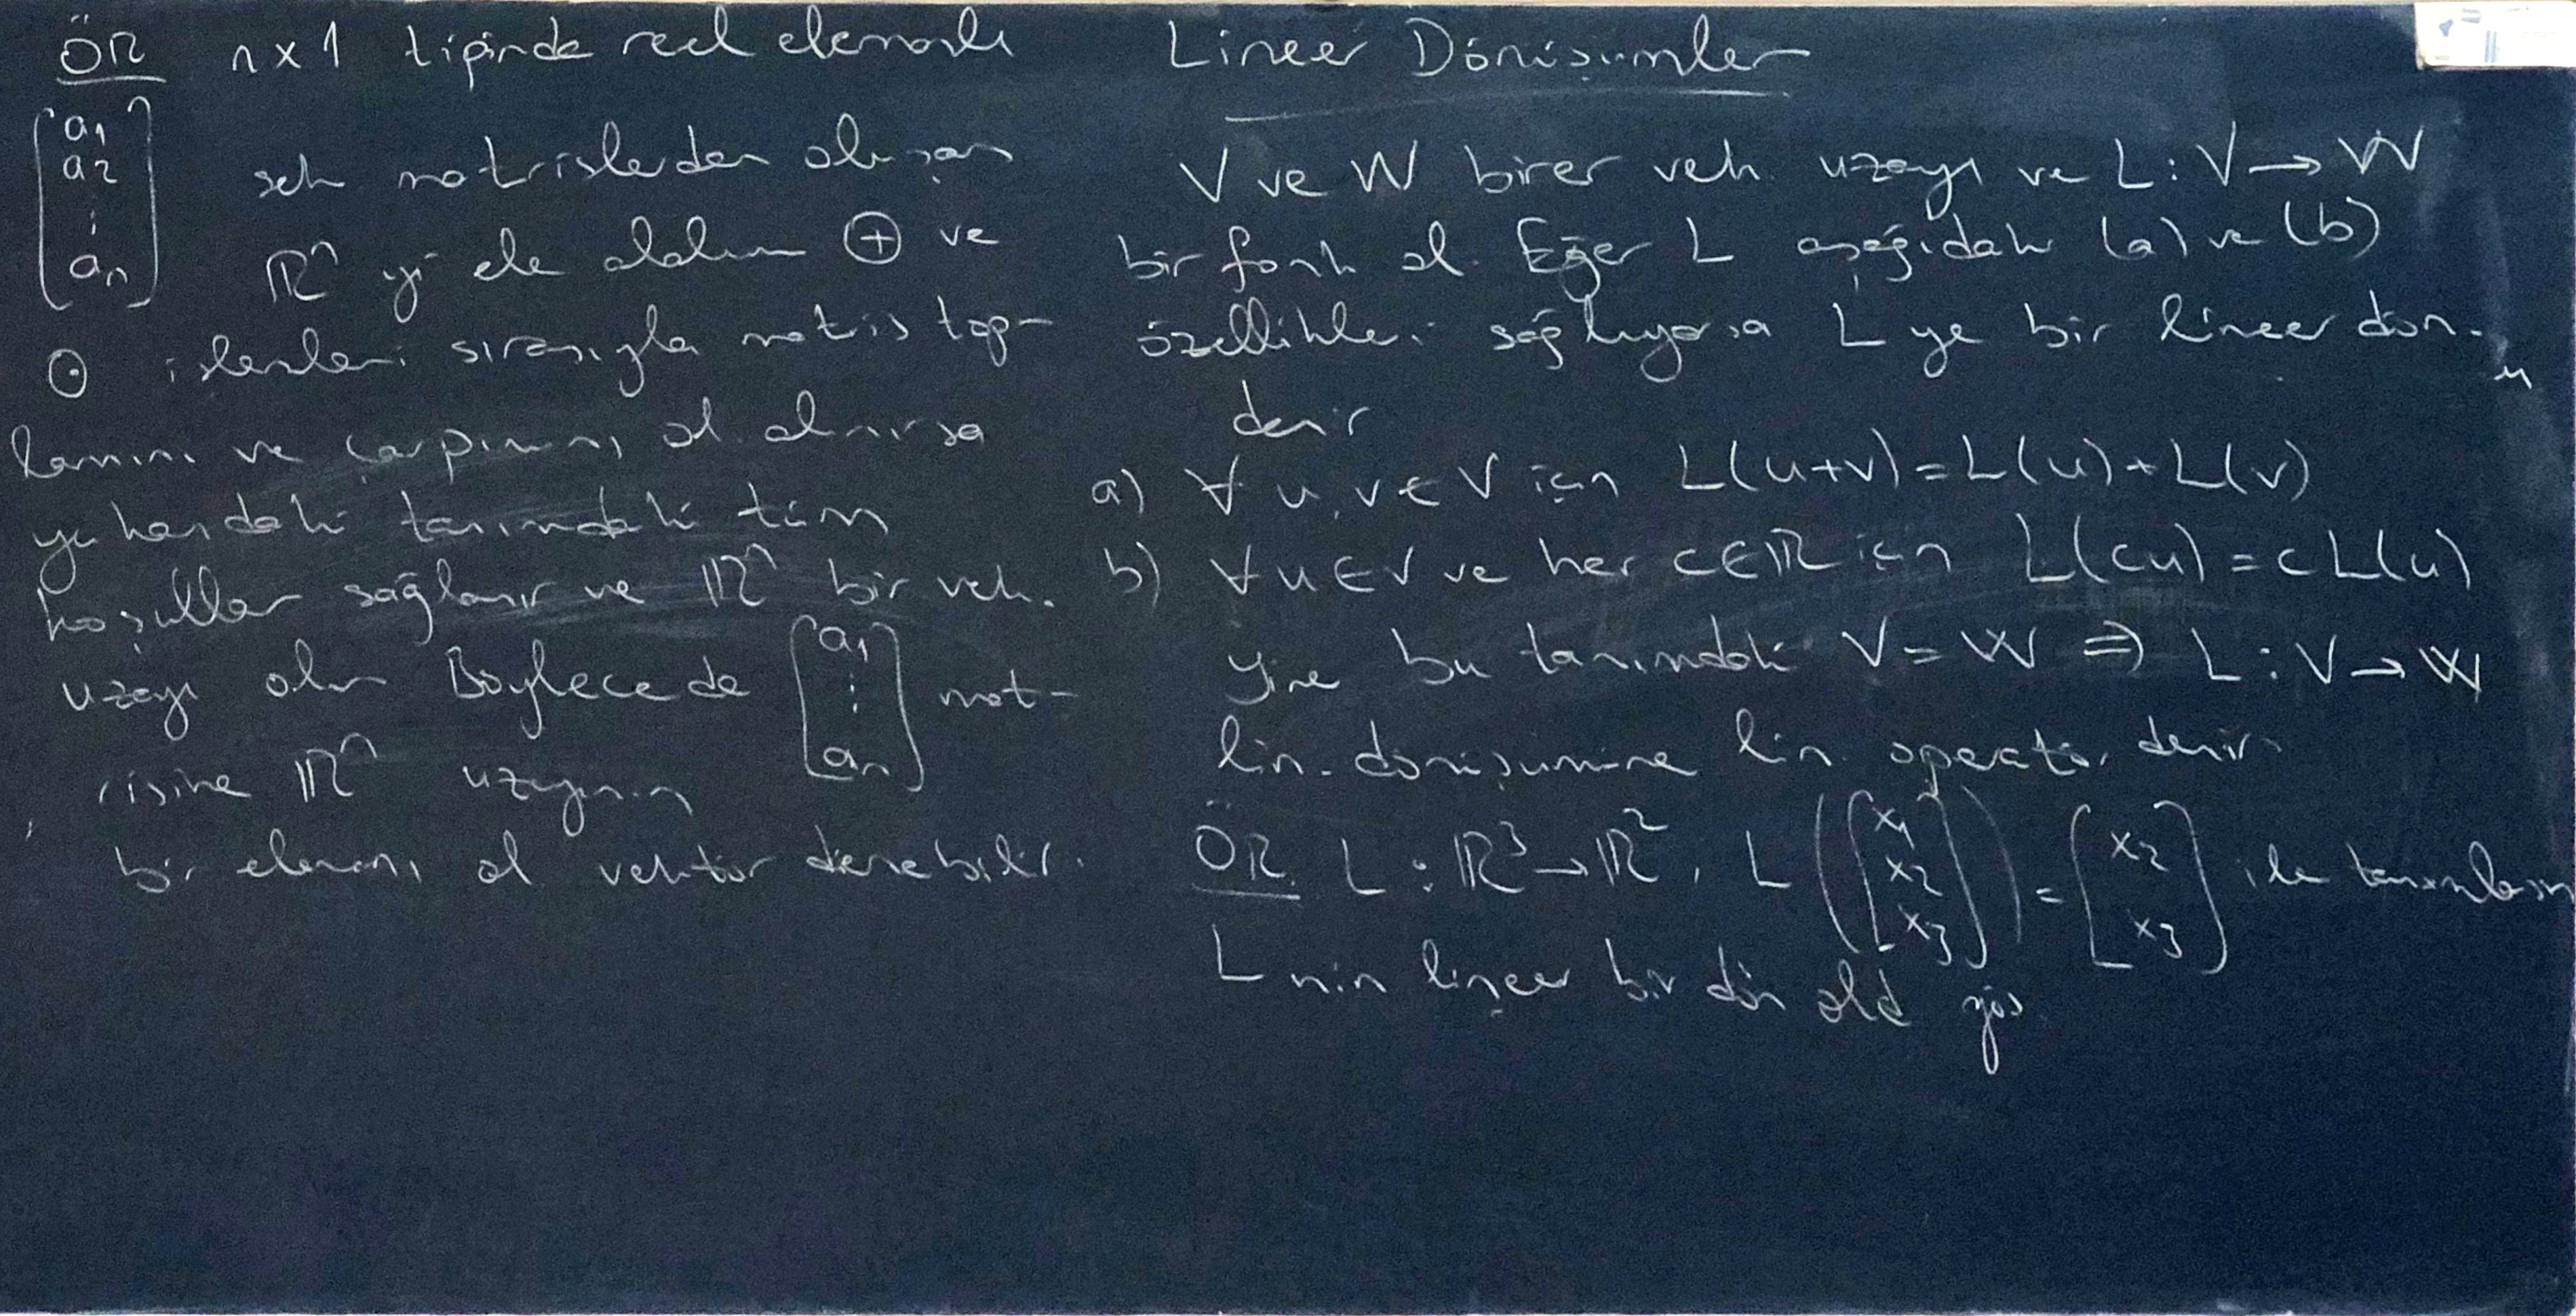 ÖR n x 1 tipinde reel elemanlı
[a1 a2 ⋮ an] şek. matrislerden oluşan
ℝⁿ yi ele alalım ⊕ ve
⊙ işlemleri sırasıyla matris top-
lamını ve çarpımını ol. alınırsa
yukarıdaki tanımdaki tüm
koşullar sağlanır ve ℝⁿ bir vek.
uzayı olur Böylece de [a1 ⋮ an] mat-
risine ℝⁿ uzayının
bir elemanı ol vektör denebilir.
Lineer Dönüşümler
V ve W birer vek. uzayı ve L : V → W
bir fonk ol. Eğer L aşağıdaki (a) ve (b)
özellikleri sağlıyorsa L ye bir lineer dön.
denir
a) ∀ u, v ∈ V için L(u+v) = L(u) + L(v)
b) ∀ u ∈ V ve her c ∈ ℝ için L(cu) = c L(u)
Yine bu tanımdaki V = W ⇒ L : V → W
lin. dönüşümüne lin. operatör denir
ÖR. L : ℝ³ → ℝ², L([x1 x2 x3]) = [x2 x3] ile tanımlansın
L nin lineer bir dön old gös.